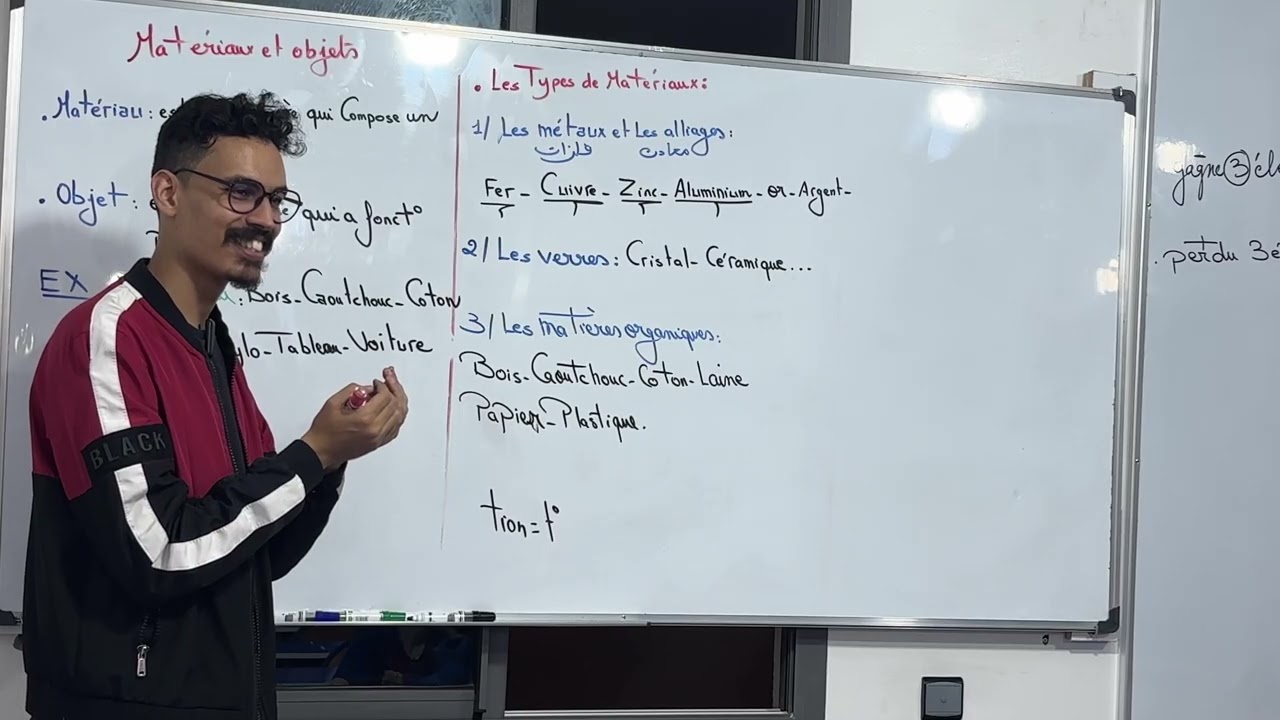 Matériaux et objets
. Matériau : es qui Compose un
. Objet : qui a fonct°
EX
: Bois - Caoutchouc - Coton
ylo - Tableau - Voiture
. Les Types de Matériaux :
1/ Les métaux et Les alliages :
فلزات معادن
Fer - Cuivre - Zinc - Aluminium - or - Argent -
2/ Les verres : Cristal - Céramique...
3/ Les matières organiques :
Bois - Caoutchouc - Coton - Laine
Papier - Plastique.
tion = t°
gagne 3 éle
. perdu 3é
BLACK